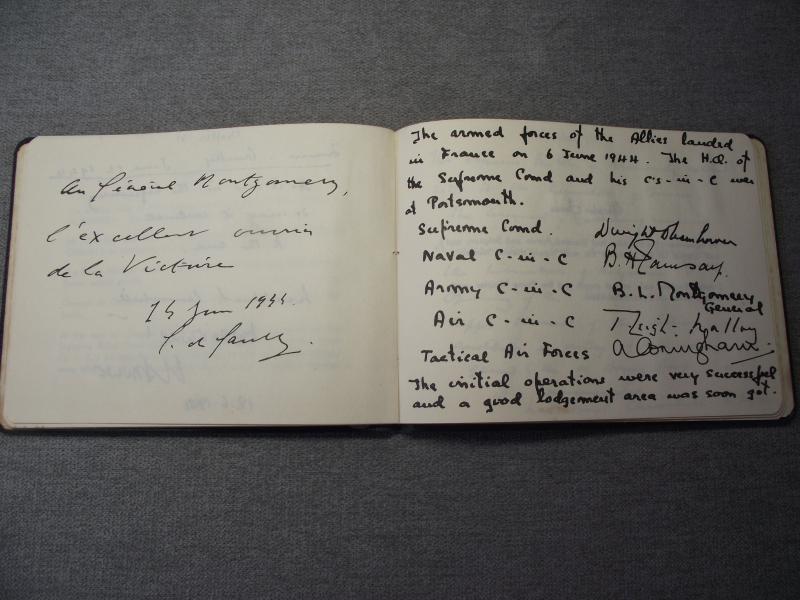 Au Général Montgomery,
l'excellent ouvrier
de la Victoire
14 Juin 1944
C. de Gaulle
The armed forces of the Allies landed
in France on 6 June 1944. The H.Q. of
the Supreme Comd and his C's-in-C were
at Portsmouth.
Supreme Comd. Dwight Eisenhower
Naval C-in-C B. H. Ramsay.
Army C-in-C B. L. Montgomery
General
Air C-in-C T Leigh-Mallory
Tactical Air Forces A Coningham
The initial operations were very successful
and a good lodgement area was soon got.